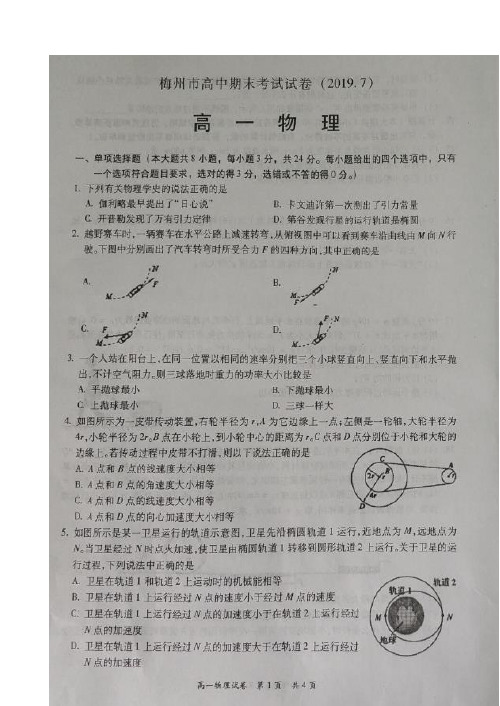 梅州市高中期末考试试卷（2019.7）
高 一 物 理
一、单项选择题（本大题共8小题，每小题3分，共24分。每小题给出的四个选项中，只有
一个选项符合题目要求，选对的得3分，选错或不答的得0分。）
1. 下列有关物理学史的说法正确的是
A. 伽利略最早提出了“日心说”
B. 卡文迪许第一次测出了引力常量
C. 开普勒发现了万有引力定律
D. 第谷发现行星的运行轨道是椭圆
2. 越野赛车时，一辆赛车在水平公路上减速转弯，从俯视图中可以看到赛车沿曲线由M向N行
驶。下图中分别画出了汽车转弯时所受合力F的四种方向，其中正确的是
A. M F N
B. M F N
C. M F N
D. M F N
3. 一个人站在阳台上，在同一位置以相同的速率分别把三个小球竖直向上、竖直向下和水平抛
出，不计空气阻力。则三球落地时重力的功率大小比较是
A. 平抛球最小
B. 下抛球最小
C. 上抛球最小
D. 三球一样大
4. 如图所示为一皮带传动装置，右轮半径为r，A为它边缘上一点；左侧是一轮轴，大轮半径为
4r，小轮半径为2r。B点在小轮上，到小轮中心的距离为r。C点和D点分别位于小轮和大轮的
边缘上。若传动过程中皮带不打滑，则以下说法正确的是
A. A点和B点的线速度大小相等
B. A点和B点的角速度大小相等
C. A点和C点的线速度大小相等
D. A点和D点的向心加速度大小相等
C
2r B r
4r
D
A
r
5. 如图所示是某一卫星运行的轨道示意图，卫星先沿椭圆轨道1运行，近地点为M，远地点为
N。当卫星经过N时点火加速，使卫星由椭圆轨道1转移到圆形轨道2上运行。关于卫星的运
行过程，下列说法中正确的是
A. 卫星在轨道1和轨道2上运动时的机械能相等
B. 卫星在轨道1上运行经过N点的速度小于经过M点的速度
C. 卫星在轨道1上运行经过N点的加速度小于在轨道2上运行经过
N点的加速度
D. 卫星在轨道1上运行经过N点的加速度大于在轨道2上运行经过
N点的加速度
轨道2
轨道1
M
N
地球
高一物理试卷 第1页 共4页